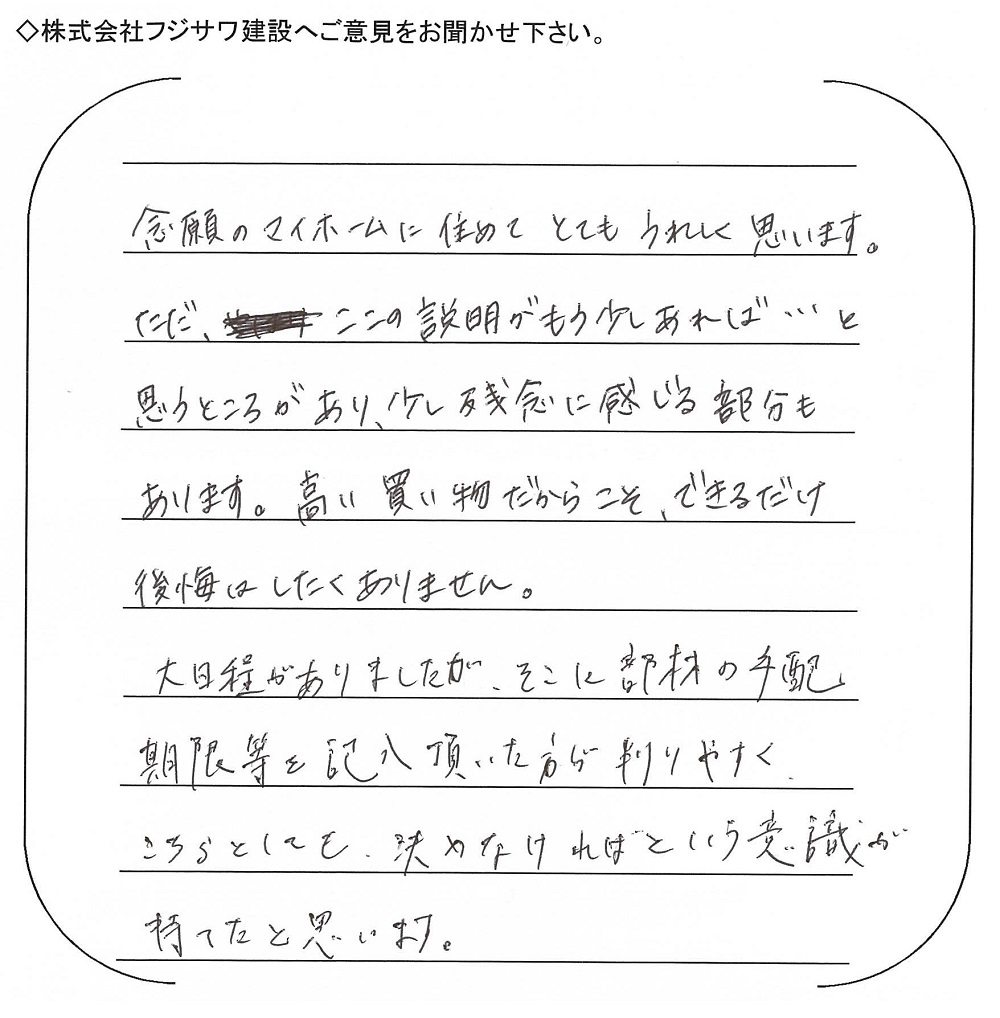 ◇株式会社フジサワ建設へご意見をお聞かせ下さい。
念願のマイホームに住めてとてもうれしく思います。
ただ、ここの説明がもう少しあれば…と
思うところがあり、少し残念に感じる部分も
あります。高い買い物だからこそ、できるだけ
後悔はしたくありません。
大日程がありましたが、そこに部材の手配
期限等を記入頂いた方が判りやすく、
こちらとしても、決めなければという意識が
持てたと思います。